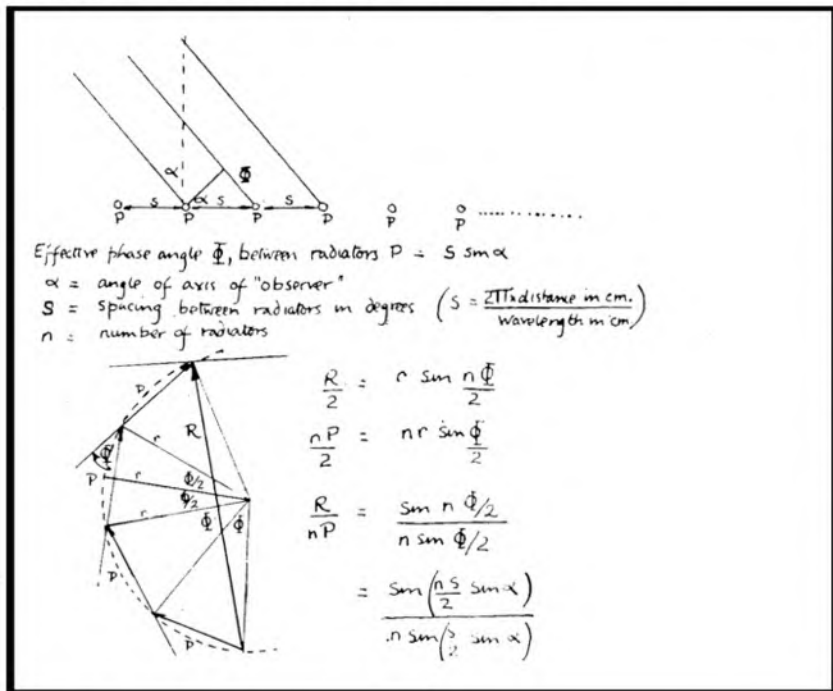 α Φ
S α S S
P P P P P P ..............
Effective phase angle Φ, between radiators P = S sin α
α = angle of axis of "observer"
S = spacing between radiators in degrees (S = 2π x distance in cm. / wavelength in cm)
n = number of radiators
P
R/2 = r sin nΦ/2
R
r
nP/2 = nr sin Φ/2
Φ
P r Φ/2
Φ/2
r Φ Φ
R/nP = sin n Φ/2 / n sin Φ/2
P
= sin (nS/2 sin α) / n sin (S/2 sin α)
P